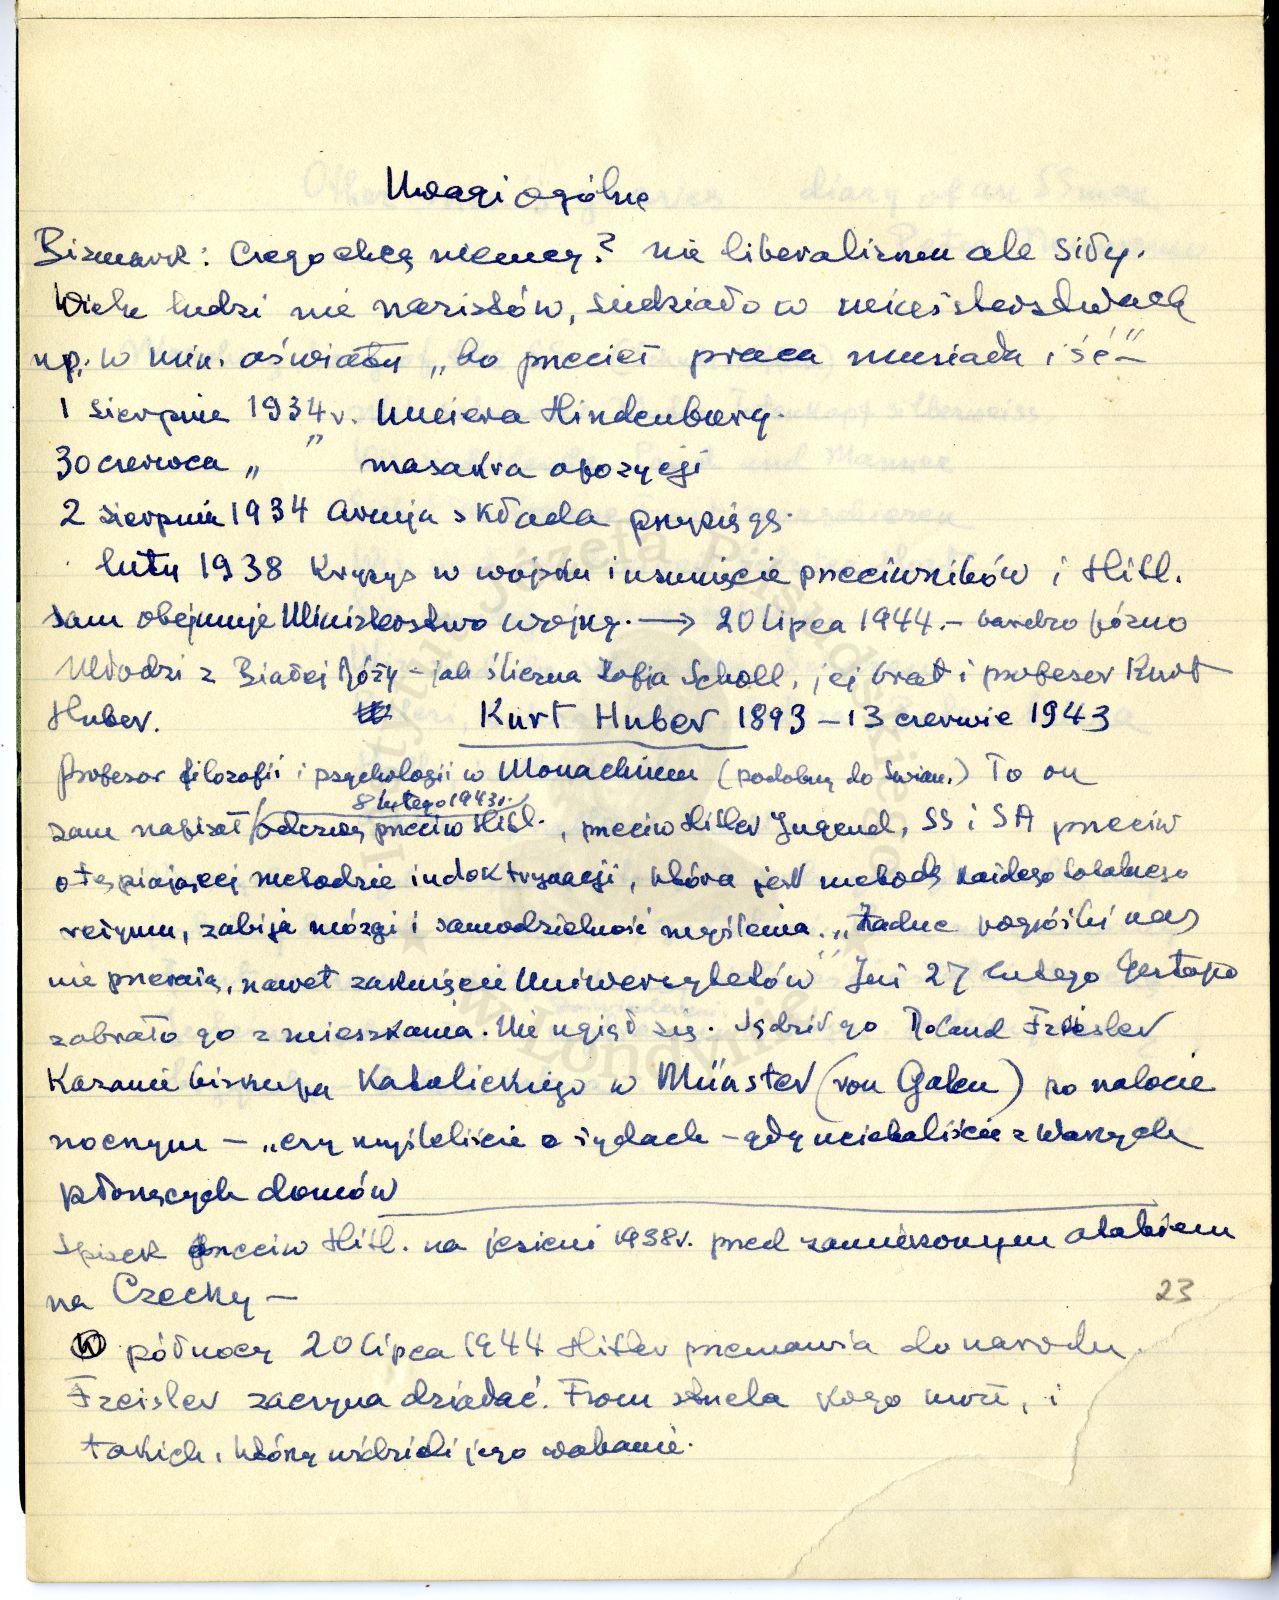 Uwagi ogólne
Bismark: Czego chcą niemcy? nie liberalizmu ale siły.
Wiele ludzi nie nazistów, siedziało w ministerstwach
np. w min. oświaty „bo przecież praca musiała iść"–
1 sierpnia 1934 r. umiera Hindenburg
30 czerwca „ " masakra opozycji
2 sierpnia 1934 armja składa przysięgę.
luty 1938 kryzys w wojsku i usunięcie przeciwników i Hitl.
sam obejmuje Ministerstwo wojny. → 20 lipca 1944 – bardzo późno
Młodzi z Białej Róży – jak śliczna Zofja Scholl, jej brat i profesor Kurt
Huber. Kurt Huber 1893 – 13 czerwie 1943
Profesor filozofii i psychologii w Monachium (podobny do Swian.) To on
8 lutego 1943 r.
sam napisał odezwę przeciw Hitl., przeciw Hitler Jugend, SS i SA przeciw
otępiającej metodzie indoktrynacji, która jest metodą każdego totalnego
reżymu, zabija mózgi i samodzielność myślenia. „Żadne pogróżki nas
nie przerażą, nawet zamknięcie Uniwersytetów" Już 27 lutego Gestapo
zabrało go z mieszkania. Nie ugiął się. Sądził go Roland Freisler
Kazanie biskupa Katolickiego w Münster (von Galen) po nalocie
nocnym – „czy myśleliście o żydach – gdy uciekaliście z Waszych
płonących domów
Spisek przeciw Hitl. na jesieni 1938 r. przed zamierzonym atakiem
na Czechy –
23
W północy 20 lipca 1944 Hitler przemawia do narodu.
Freisler zaczyna działać. From strzela kogo może, i
takich, którzy widzieli jego wahanie.
Instytut Józefa Piłsudskiego
w Londynie